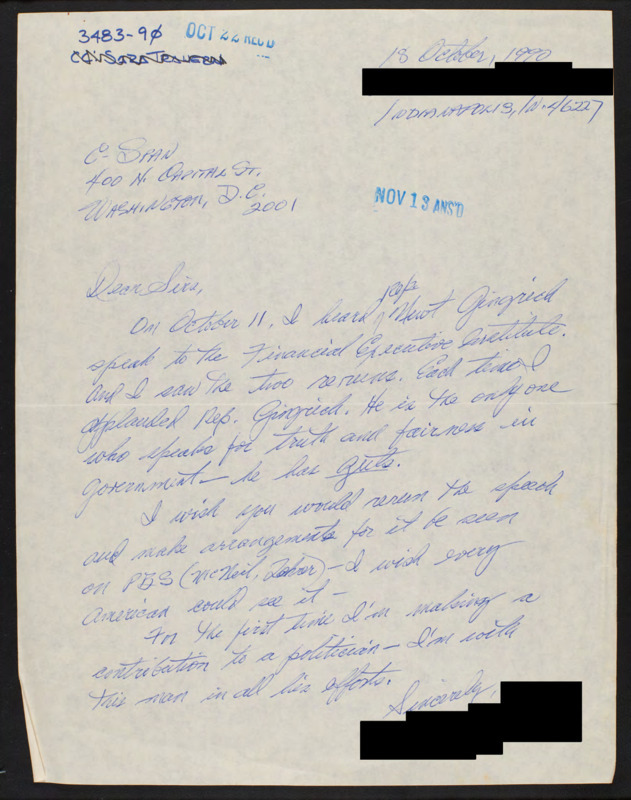 3483-90
OCT 22 REC'D
CC: SARA
18 October, 1990
INDIANAPOLIS, IN. 46227
C-SPAN
400 N. CAPITAL ST.
WASHINGTON, D.C.
2001
NOV 13 ANS'D
Dear Sirs,
On October 11, I heard Rep. Newt Gingrich
speak to the Financial Executive Institute.
And I saw the two reruns. Each time I
applauded Rep. Gingrich. He is the only one
who speaks for truth and fairness in
government — he has guts.
I wish you would rerun the speech
and make arrangements for it be seen
on PBS (McNeil, Lehrer) — I wish every
American could see it —
For the first time I'm making a
contribution to a politician — I'm with
this man in all his efforts.
Sincerely,